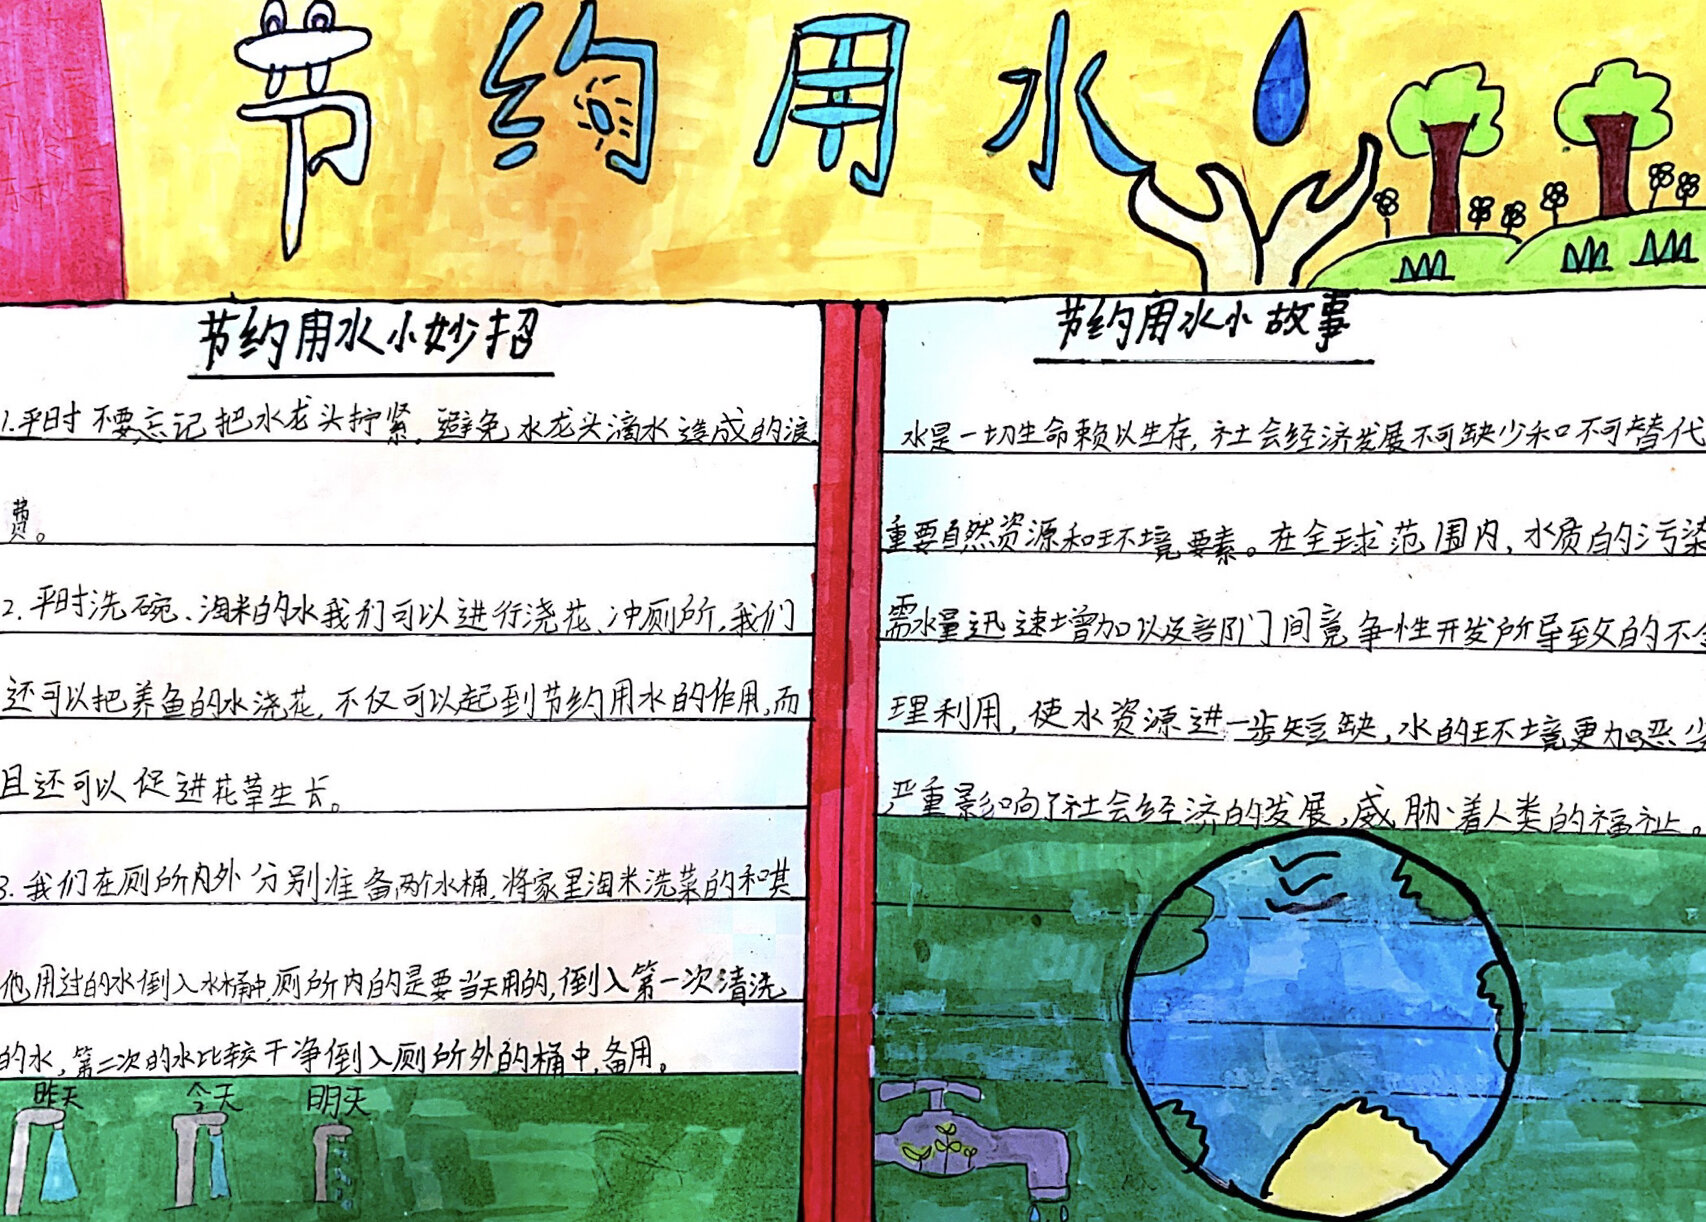 节约用水
节约用水小妙招
1.平时不要忘记把水龙头拧紧,避免水龙头滴水造成的浪
费。
2.平时洗碗、淘米的水我们可以进行浇花、冲厕所,我们
还可以把养鱼的水浇花,不仅可以起到节约用水的作用,而
且还可以促进花草生长。
3.我们在厕所内外分别准备两个水桶,将家里淘米洗菜的和其
他用过的水倒入水桶中,厕所内的是要当天用的,倒入第一次清洗
的水,第二次的水比较干净倒入厕所外的桶中,备用。
昨天 今天 明天
节约用水小故事
水是一切生命赖以生存,社会经济发展不可缺少和不可替代
重要自然资源和环境要素。在全球范围内,水质的污染
需水量迅速增加以及部门间竞争性开发所导致的不合
理利用,使水资源进一步短缺,水的环境更加恶劣
严重影响了社会经济的发展,威胁着人类的福祉。